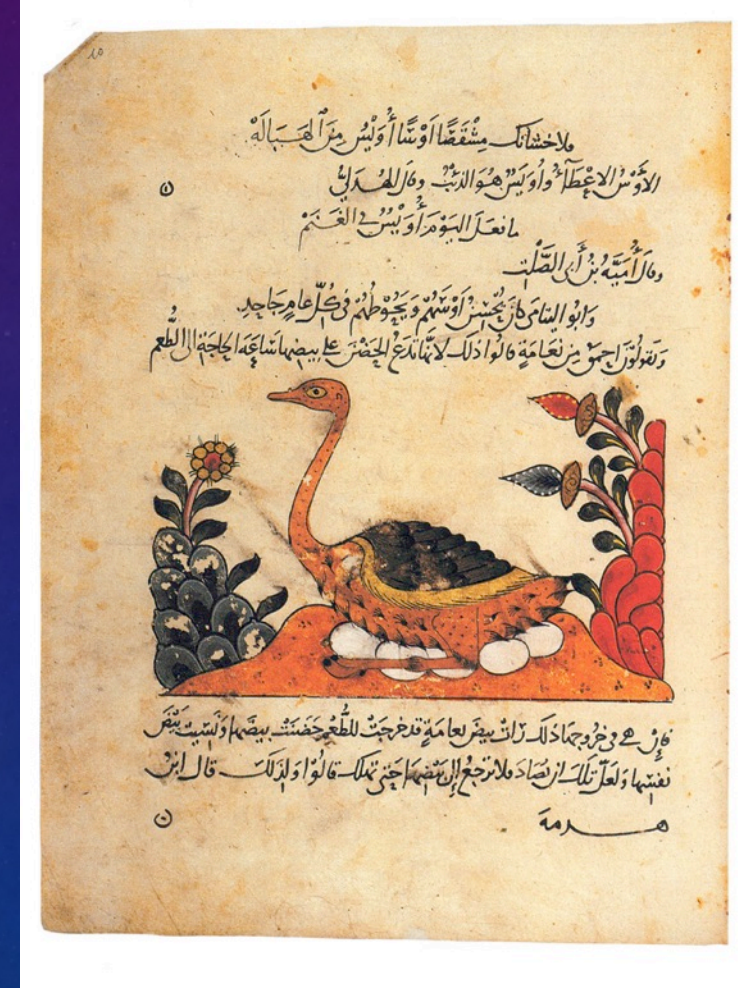 10
فلاحشأنك مشقصًا أوسًا أُوَيْسُ مِنَ الهَبَالَهْ
الأَوْسُ الإعْطَاءُ وأُوَيْسٌ هُوَ الذئبُ وقال الهُذَلِيُّ
مافعَلَ اليَوْمَ أُوَيْسٌ في الغَنَمْ
وقال أُمَيَّةُ بْنُ أَبي الصَّلْتِ
وَابو اليتامى كانَ يُحْسِنُ أَوْسَهُمْ وَيَحُوطُهُمْ في كُلِّ عامٍ جَاحِدِ
وَيَقولُونَ احمَقُ مِن نَعَامَةٍ قالُوا ذلك لأنَّها تَدَعُ الحَضْنَ على بيضِها سَاعَةَ الحاجَةِ الى الطُّعم
فإن هي في خروجها ذلك رَاتْ بيضَ نعامَةٍ قد خرجَتْ للطُّعْمِ حَضَنَتْ بيضَها وَنَسِيَتْ بَيْضَ
نفسِها وَلعَلَّ تلك ان تُصَادَ فلا ترجعُ إلى بَيْضِها حَتى تهلك قالُوا وَلذلك قال ابنُ
هرمة